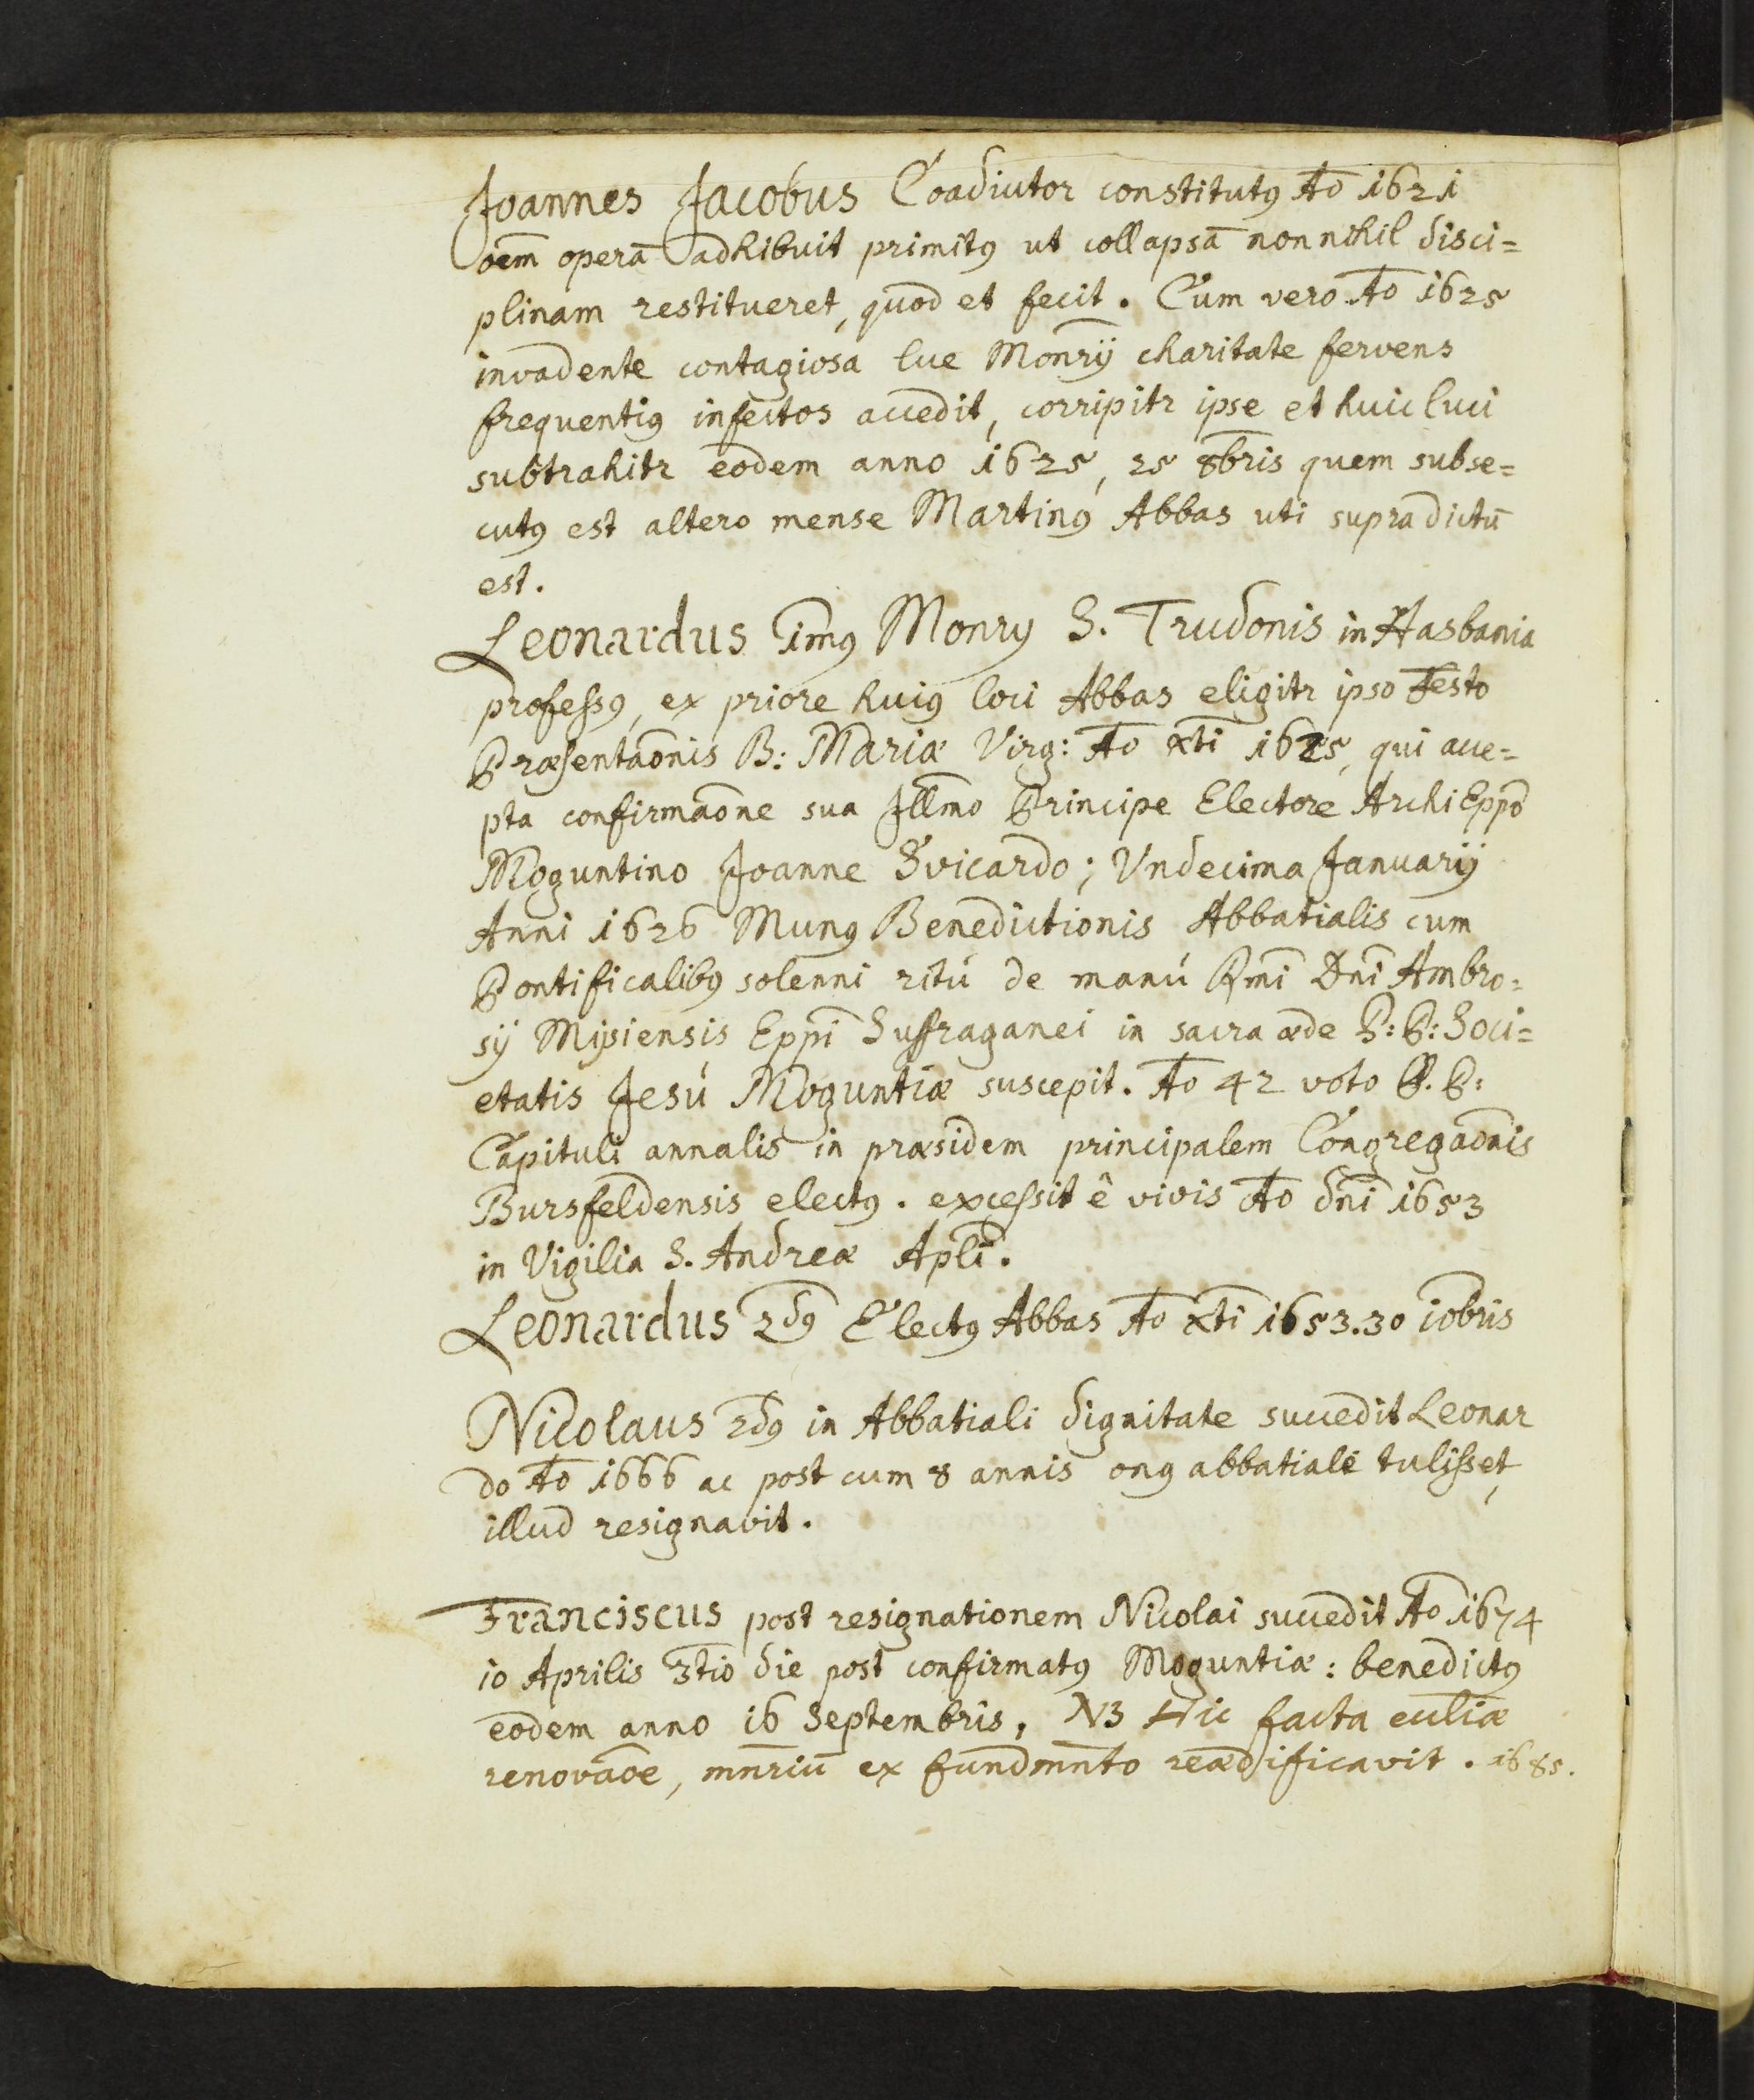 Joannes Jacobus Coadiutor constitutꝰ Ao 1621
oem̄ operā adhibuit primitꝰ ut collapsā nonnihil disci=
plinam restitueret, quod et fecit. Cum vero Ao 1625
invadente contagiosa lue Monrij charitate fervens
frequentiꝰ infectos accedit, corripitr ipse et huic luci
subtrahitr eodem anno 1625, 25 8bris quem subse=
cutꝰ est altero mense Martinꝰ Abbas uti supradictū
est.
Leonardus 1mꝰ Monrij S. Trudonis in Hasbania
professꝰ, ex priore huiꝰ loci Abbas eligitr ipso Festo
Præsentaōnis B: Mariæ Virg: Ao xti 1625, qui acce=
pta confirmaōne sua Jllmo Principe Electore ArchiEppo
Moguntino Joanne Svicardo; Vndecima Januarij
Anni 1626 Munꝰ Benedictionis Abbatialis cum
Pontificalibꝰ solenni ritú de manú Rmi Dni Ambro=
sij Misiensis Eppi Suffraganei in sacra æde P: P: Soci=
etatis Jesú Moguntiæ suscepit. Ao 42 voto P. P:
Capituli annalis in præsidem principalem Congregaōnis
Bursfeldensis electꝰ. excessit ê vivis Ao dni 1653
in Vigilia S. Andreæ Apli.
Leonardus 2dꝰ Electꝰ Abbas Ao xti 1653. 30 10bris
Nicolaus 2dꝰ in Abbatiali dignitate succedit Leonar
do Ao 1666 ac post cum 8 annis onꝰ abbatiale tulisset,
illud resignavit.
Franciscus post resignationem Nicolai succedit Ao 1674
10 Aprilis 3tio die post confirmatꝰ Moguntiæ: benedictꝰ
eodem anno 16 Septembris, NB Hic facta eccliæ
renovaōe, mnriū ex fundmnto reædificavit. 1685.